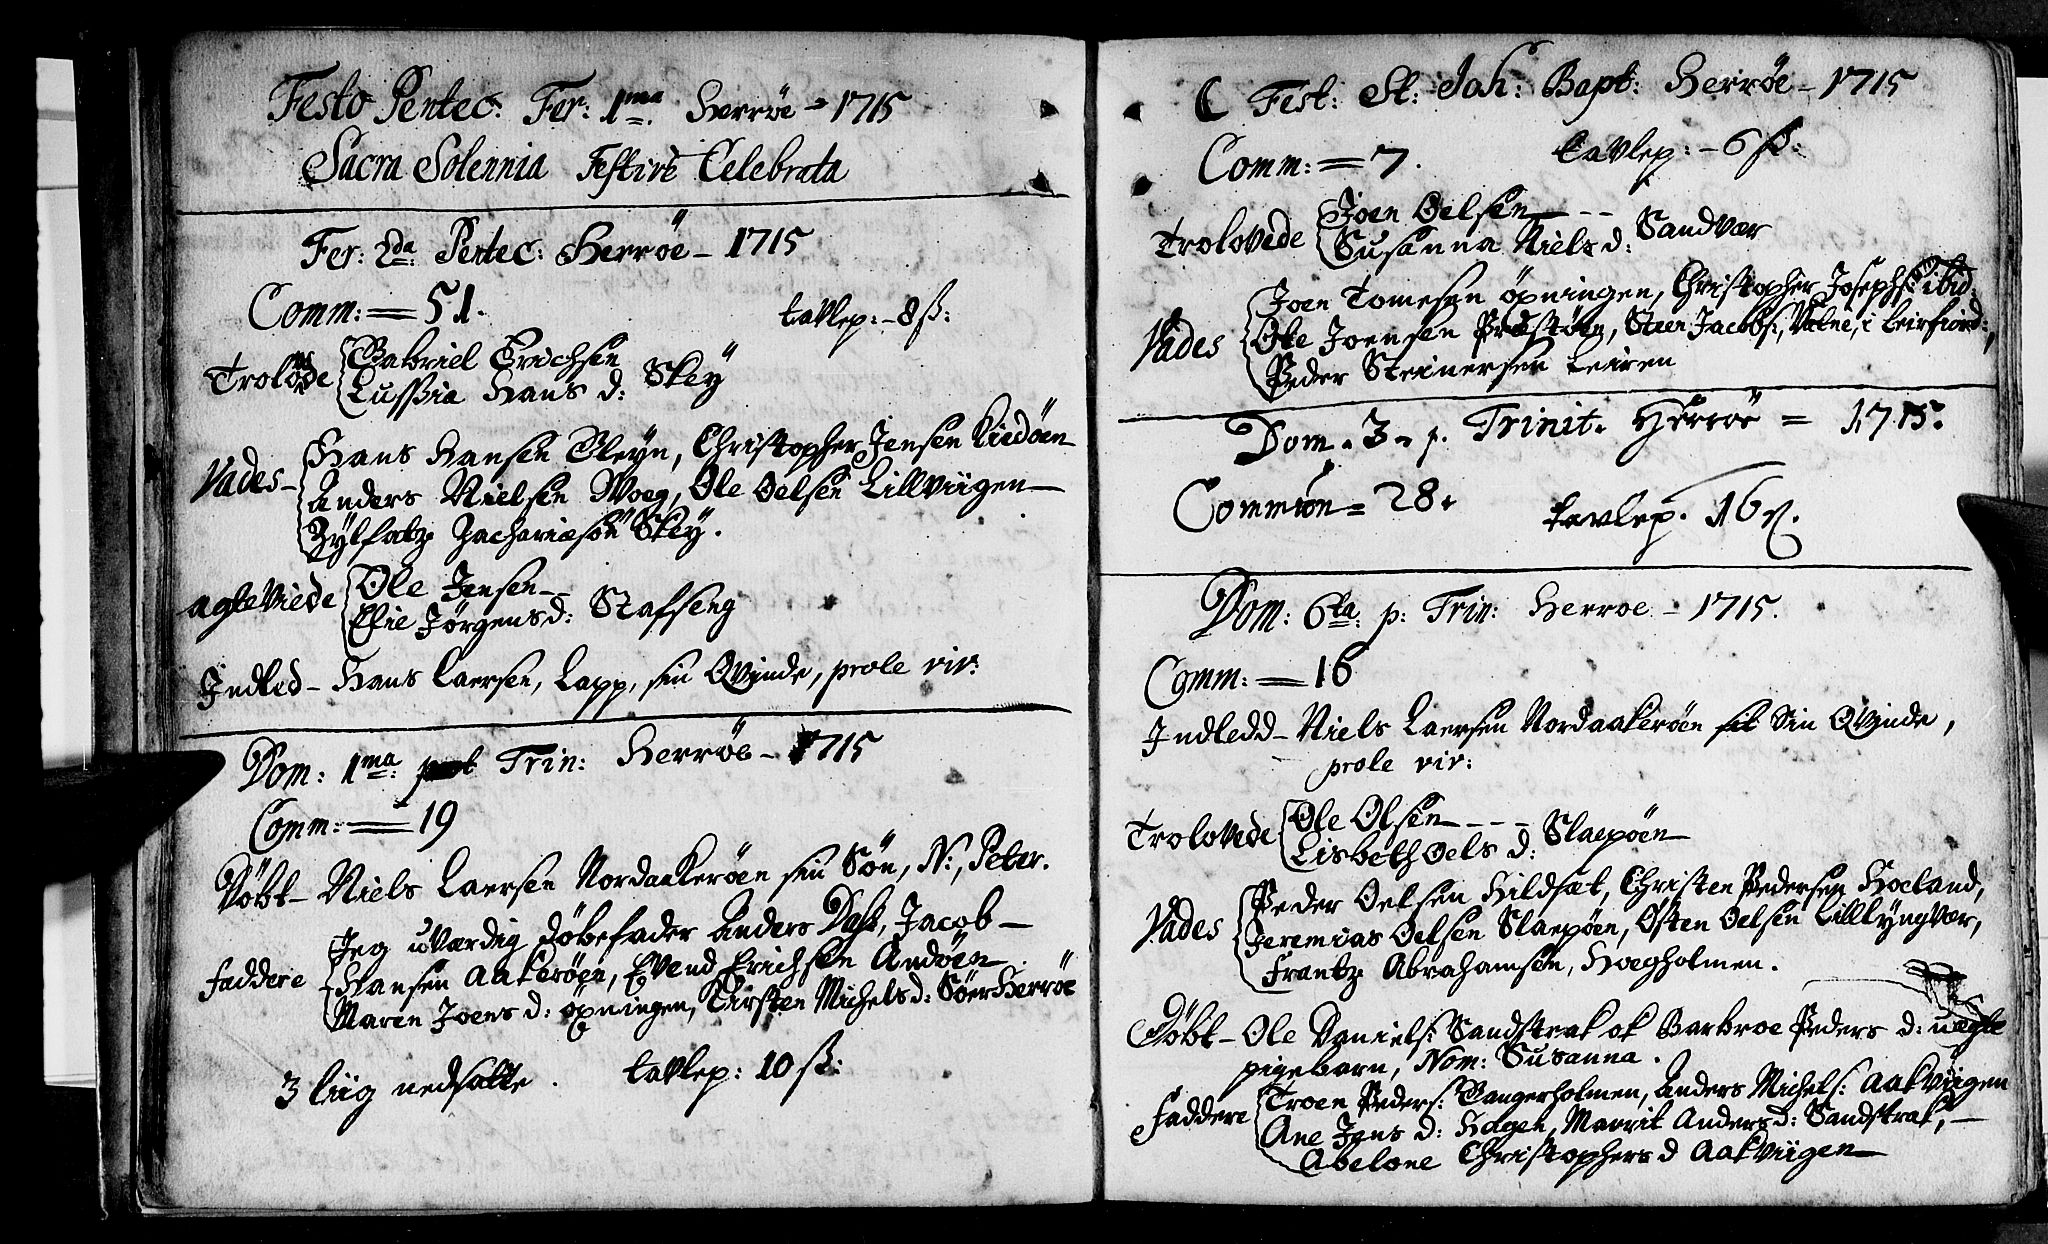 Festo Pentec: Fer: 1ma Herrøe - 1715
Sacra Solennia Festivè Celebrata
Fer: 2da: Pentec: Herrøe - 1715
Comm: = 51. tavlep: - 8 ß:
Trolovede
Gabriel Erichsen
Lussia Hans d: Skeÿ
Vades -
Hans Hansen Tleyn, Christopher Jensen
Anders Nielsen Woeg, Ole Oelsen Lillviigen -
Zÿlfatz Zachariæsøn Skeÿ.
agteviede
Ole Jensen -
Elie Jørgens d: Stafseng
Indled - Hans Laersen, Lapp, sin Qvinde, prole vir:
Dom: 1ma: post Trin: Herrøe - 1715
Comm: = 19
Døbt - Niels Laersen Nordaakerøen sin Søn, N:, Peter.
faddere
Jeg uværdig døbefader Anders Dass, Jacob -
Hansen Aakerøen, Evend Erichsen Andøen
Maren Joens d: øpningen, Kirsten Michels d: Søer Herrøe
3 liig nedsatte. tavlep: 10 ß:
Fest: St: Joh: Bapt: Herrøe - 1715
Comm: = 7. tavlep: - 6 ß:
Trolovede
Joen Oelsen - - -
Susanna Niels d: Sandvær
Vades
Joen Tomesen øpningen, Christopher Josephs: ibid:
Ole Joensen Præstøen, Steen Jacobs:, Valne, i Leirfiord:,
Peder Steinersen Leiren
Dom. 3. p. Trinit. Herröe = 1715.
Common = 28. tavlep. 16 ß.
Dom: 6ta: p: Trin: Herroe - 1715.
Comm: = 16
Indledd - Niels Laersen Nordaakerøen sin Qvinde,
prole vir:
Trolovede
Ole Olsen - - -
Lisbeth Oels d: Slaepøen
Vades
Peder Oelsen Hildsæt, Christen Pedersen Hoeland,
Jeremias Oelsen Slaepøen, Østen Oelsen Lilllÿngvær,
Frantz Abrahamsen, Hoegholmen.
Døbt - Ole Daniels: Sandstrak ok Barbroe Peders d: uægte
pigebarn, Nom: Susanna.
faddere
Troen Peders: Tangerholmen, Anders Michels: Aakviigen
Ane Jens d: Hagen, Marrit Anders d: Sandstrak, -
Abelone Christophers d Aakviigen -